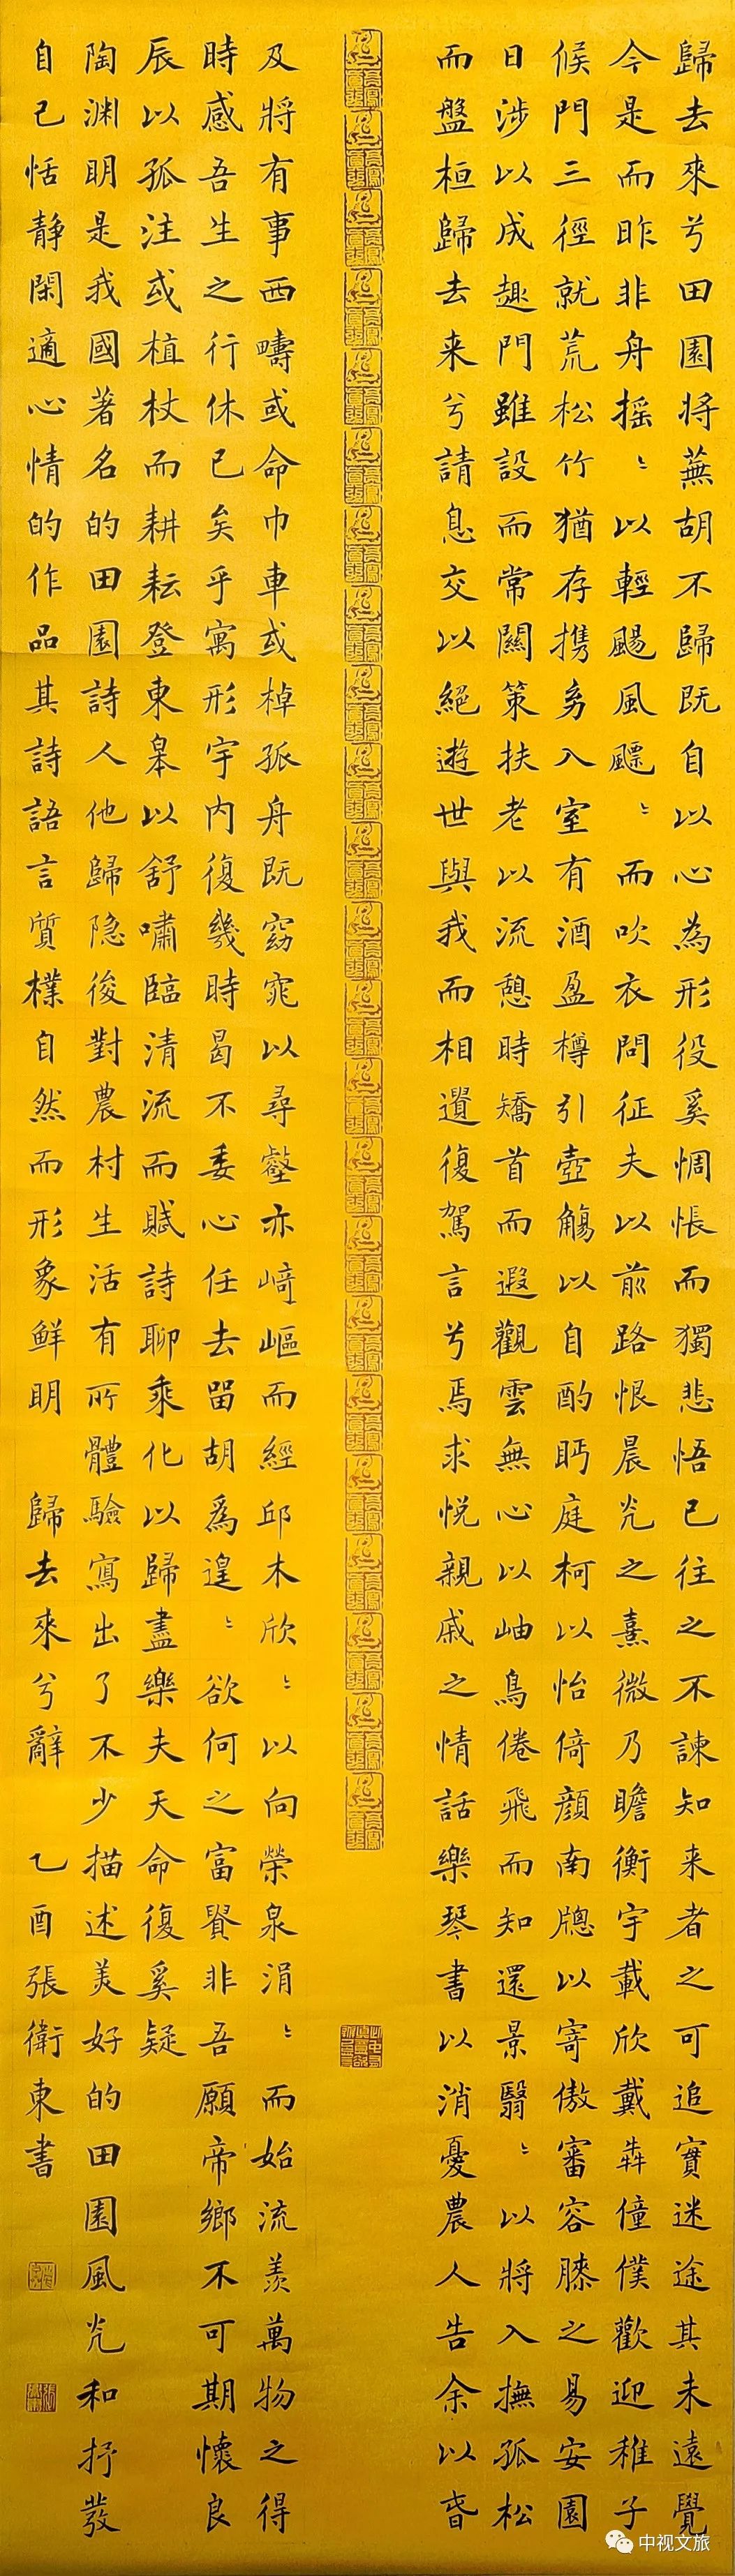 歸去來兮田園将蕪胡不歸既自以心為形役奚惆悵而獨悲悟已往之不諫知来者之可追實迷途其未遠覺
今是而昨非舟摇〻以輕颺風飃〻而吹衣問征夫以前路恨晨光之熹微乃瞻衡宇載欣戴犇僮僕歡迎稚子
候門三徑就荒松竹猶存携幼入室有酒盈樽引壺觴以自酌眄庭柯以怡倚顔南牕以寄傲審容膝之易安園
日涉以成趣門雖設而常關策扶老以流憩時矯首而遐觀雲無心以岫鳥倦飛而知還景翳〻以將入撫孤松
而盤桓歸去来兮請息交以絕遊世與我而相遺復駕言兮焉求悦親戚之情話樂琴書以消憂農人告余以春
及將有事西疇或命巾車或棹孤舟既窈窕以尋壑亦崎嶇而經邱木欣〻以向榮泉涓〻而始流羨萬物之得
時感吾生之行休已矣乎寓形宇内復幾時曷不委心任去留胡爲遑〻欲何之富貴非吾願帝鄉不可期懷良
辰以孤注或植杖而耕耘登東皋以舒嘯臨清流而賦詩聊乘化以歸盡樂夫天命復奚疑
陶渊明是我國著名的田園詩人他歸隐後對農村生活有所體驗寫出了不少描述美好的田園風光和抒發
自己恬静閑適心情的作品其詩語言質樸自然而形象鲜明 歸去來兮辭 乙酉張衛東書
中视文旅